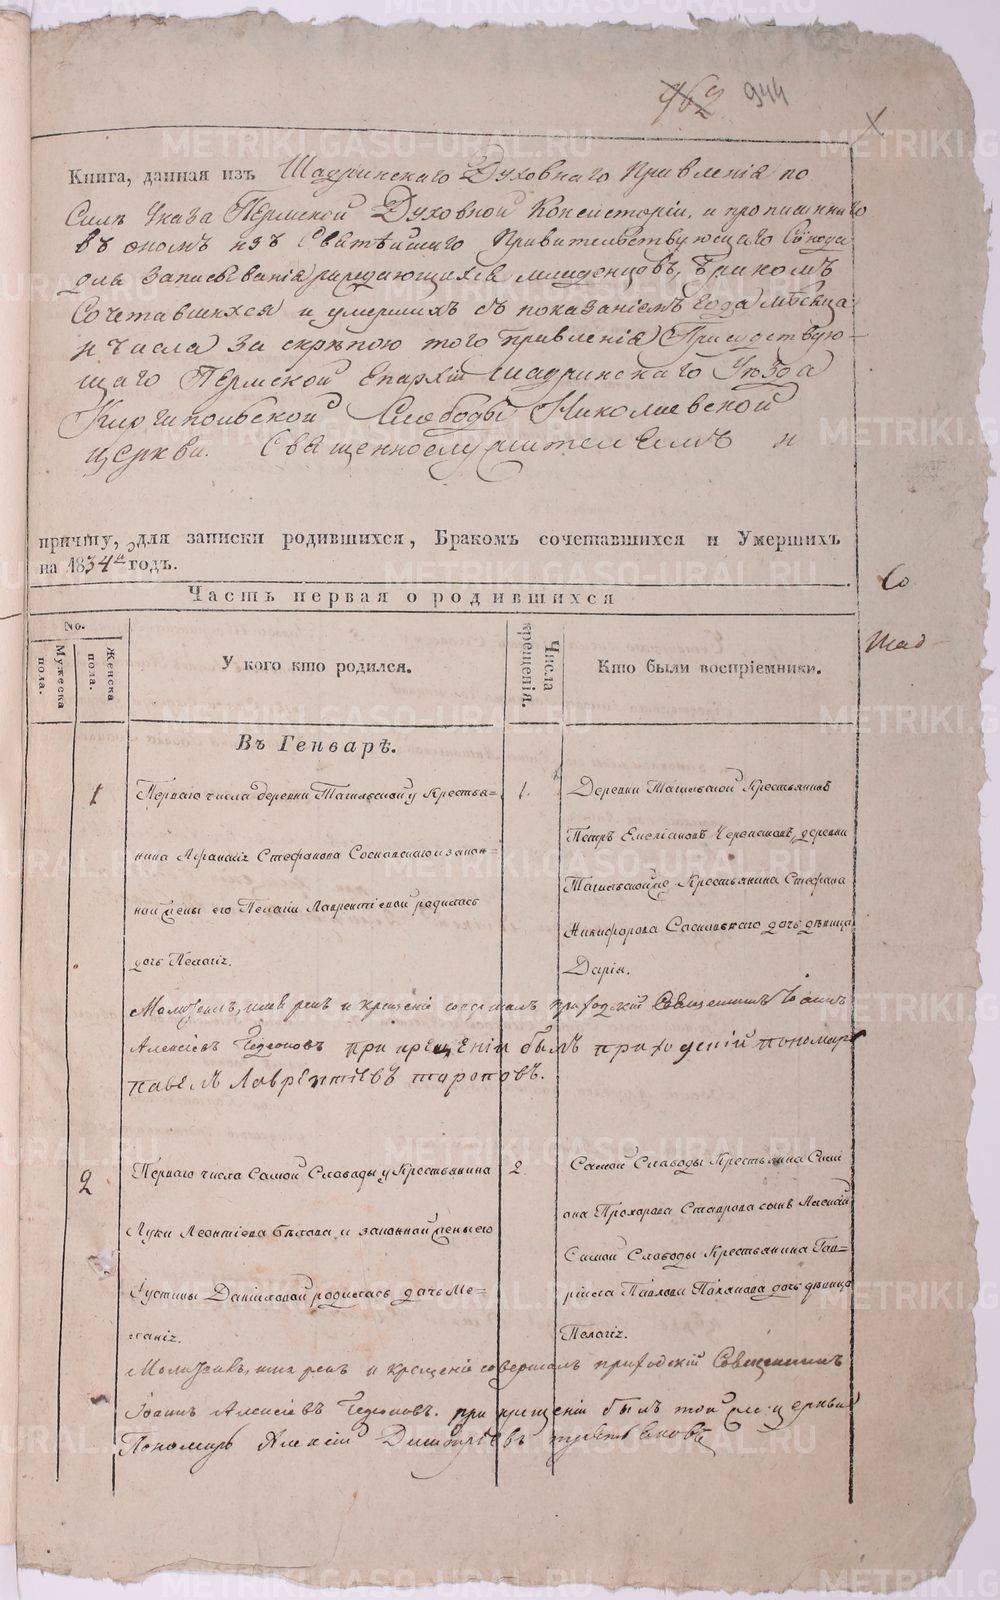 962 944
Книга, данная изъ Шадринскаго Духовнаго Правленія по
Силѣ Указа Пермской Духовной Консисторіи, и прописаннаго
въ ономъ изъ Святѣйшаго Правительствующаго Сѵнода
для записыванія рождающихся младенцовъ, бракомъ
Сочетавшихся и умершихъ съ показаніемъ года мѣсяца
и числа за скрѣпою того Правленія Присудствую-
щаго Пермской Епархіи Шадринскаго Уѣзда
Слободы Николаевской
церкви. Священнослужителемъ и
причту, для записки родившихся, Бракомъ сочетавшихся и Умершихъ
на 1834й годъ.
Со
Часть первая о родившихся
Шад
No.
Мужеска пола.
Женска пола.
У кого кто родился.
Числа крещенія.
Кто были воспріемники.
Въ Генварѣ.
1 Перваго числа деревни Тагильской у Крестья- 1. Деревни Тагильской Крестьянинъ
нина Афанасія Стефанова Сосновскаго и закон- Петръ Емеліановъ Черепановъ, деревни
ной жены его Пелагіи Лаврентіевой родилась Тагильской Крестьянина Стефана
дочь Пелагія. Никифорова Сосновскаго дочь дѣвица
Дарія.
Молитвилъ, имя рекъ и крещеніе совершалъ приходскій Священникъ Іоаннъ
Алексіевъ при крещеніи былъ приходскій пономарь
Павелъ Лаврентіевъ Тороповъ.
2 Перваго числа Самой Слободы у Крестьянина 2 Самой Слободы Крестьянина Симе
Луки Леонтіева Бѣлова и законной жены его она Прохорова сынъ
Іустины Даниловой родилась дочь Ме- Самой Слободы Крестьянина Гав-
ланія. ріила Павлова дочь дѣвица
Пелагія.
Молитвилъ, имя рекъ и крещеніе совершалъ приходскій Священникъ
Іоаннъ Алексіевъ при крещеніи былъ той же церкви
Пономарь Алексій Димитріевъ